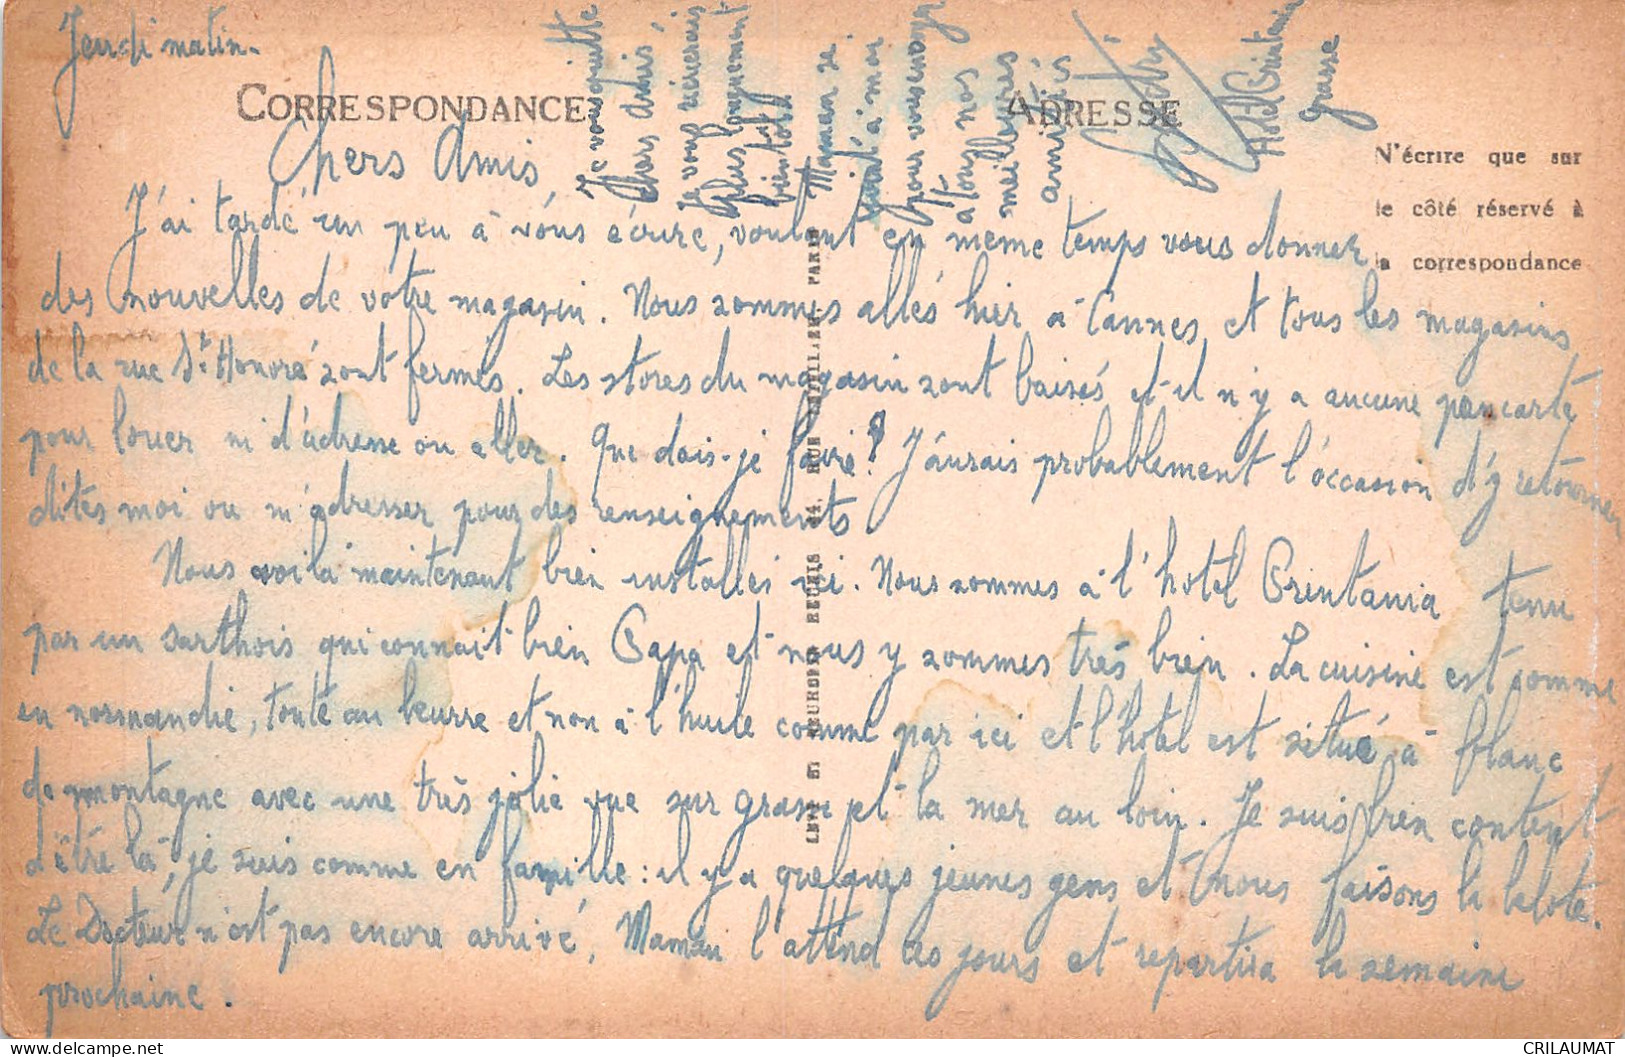 Jeudi matin.
CORRESPONDANCE
ADRESSE
N'écrire que sur
le côté réservé à
la correspondance
Chers Amis,
J'ai tardé un peu à vous écrire, voulant en même temps vous donner
des nouvelles de votre magasin. Nous sommes allés hier à Cannes et tous les magasins
de la rue St Honoré sont fermés. Les stores du magasin sont baisés et il n'y a aucune pancarte
pour louer ni d'adresse ou aller. Que dois-je faire? J'aurais probablement l'occasion d'y retourner
dites moi ou m'adresser pour des renseignements.
Nous voilà maintenant bien installés ici. Nous sommes à l'hotel Printania tenu
par un sarthois qui connait bien Papa et nous y sommes très bien. La cuisine est comme
en normandie, toute au beurre et non à l'huile comme par ici et l'hotel est situé à flanc
de montagne avec une très jolie vue sur grasse et la mer au loin. Je suis bien content
d'être là, je suis comme en famille : il y a quelques jeunes gens et nous faisons la belote.
Le Docteur n'est pas encore arrivé, Maman l'attend ces jours et repartira la semaine
prochaine.
Je vous quitte
chers amis
Je vous récrirais
plus longuement
bientôt
Maman se
joint à moi
pour vous envoyer
à tous nos
meilleures
amitiés
Hotel Printania
Grasse
LEVY ET NEURDEIN REUNIS 44, RUE LETELLIER, PARIS
CRILAUMAT